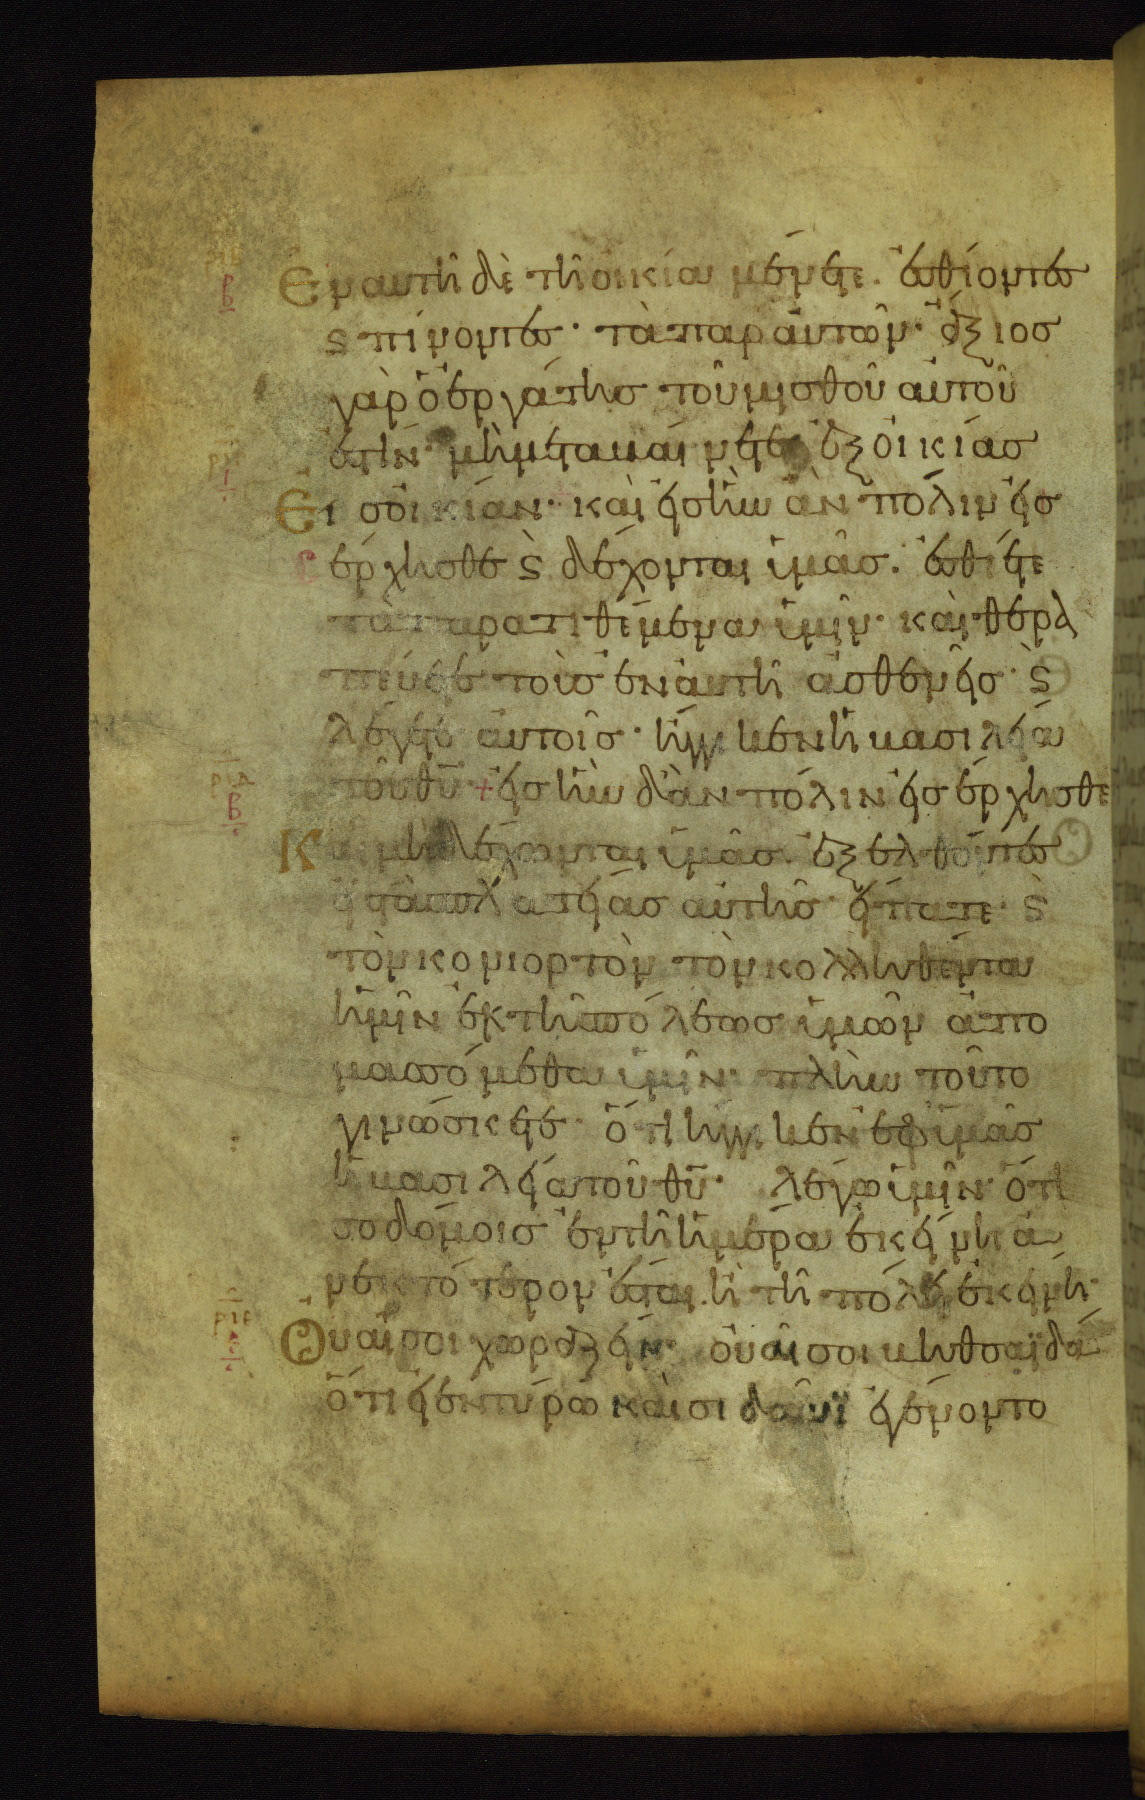 Ἐν αὐτῇ δὲ τῇ οἰκίᾳ μένετε. ἐσθίοντες
ϛ πίνοντες· τὰ παρ αὐτῶν· ἄξιος
γὰρ ὁ ἐργάτης τοῦ μισθοῦ αὐτοῦ
ἐστίν· μὴ μεταβαίνετε ἐξ οἰκίας
Εἰς οἰκίαν· καὶ εἰς ἣν ἂν πόλιν εἰσ
έρχησθε ϛ δέχονται ὑμᾶς. ἐσθίετε
τὰ παρατιθέμενα ὑμῖν· καὶ θερα
πεύετε τοὺς ἐν αὐτῇ ἀσθενεῖς· ϛ
λέγετε αὐτοῖς· ἤγγικεν ἡ βασιλεία
τοῦ θῦ + εἰς ἣν δ' ἂν πόλιν εἰσέρχησθε
Καὶ μὴ δέχωνται ὑμᾶς. ἐξελθόντες
εἰς τὰς πλατείας αὐτῆς· εἴπατε· ϛ
τὸν κονιορτὸν τὸν κολληθέντα
ἡμῖν ἐκ τῆς πόλεως ὑμῶν ἀπο
μασσόμεθα ὑμῖν· πλὴν τοῦτο
γινώσκετε· ὅτι ἤγγικεν ἐφ ὑμᾶς
ἡ βασιλεία τοῦ θῦ· λέγω ὑμῖν· ὅτι
σοδόμοις ἐν τῇ ἡμέρᾳ ἐκείνῃ ἀ
νεκτότερον ἔσται. ἢ τῇ πόλει ἐκείνῃ·
Οὐαί σοι χωραζείν· οὐαί σοι βηθσαϊδά
ὅτι εἰ ἐν τύρῳ καὶ σιδῶνϊ ἐγένοντο